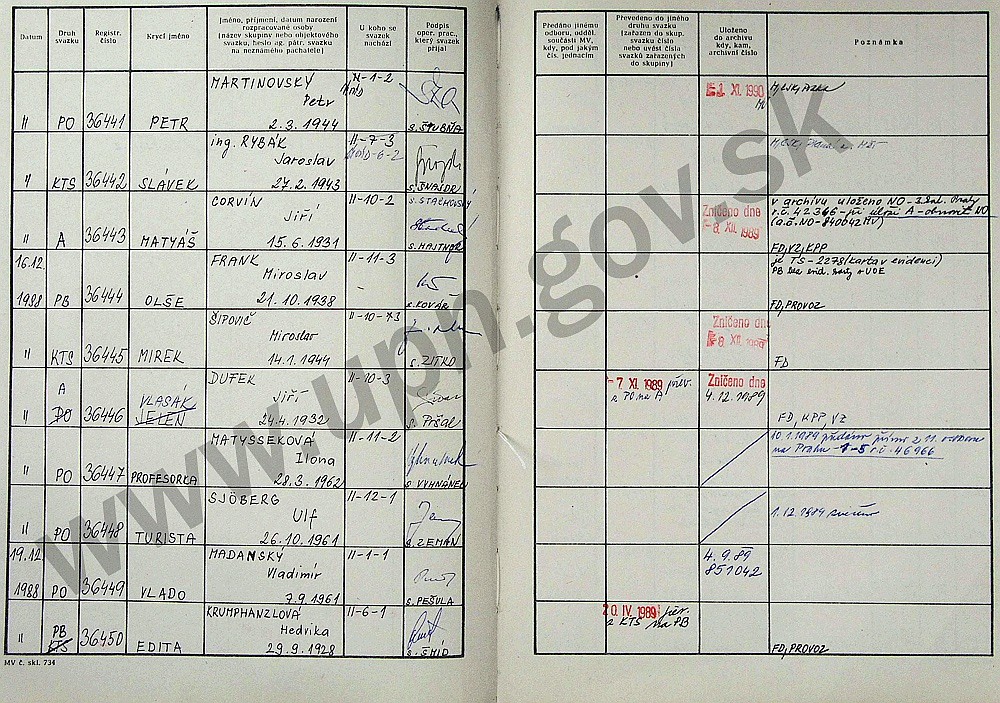 Datum
Druh svazku
Registr. číslo
Krycí jméno
Jméno, příjmení, datum narození
rozpracované osoby
(název skupiny nebo objektového
svazku, heslo ag. pátr. svazku
na neznámého pachatele)
U koho se
svazek
nachází
Podpis
oper. prac.,
který svazek
přijal
Předáno jinému
odboru, odděl.
součásti MV,
kdy, pod jakým
čís. jednacím
Převedeno do jiného
druhu svazku
(zařazen do skup.
svazku číslo
nebo uvést čísla
svazků zařazených
do skupiny)
Uloženo
do archivu
kdy, kam,
archivní číslo
Poznámka
MARTINOVSKÝ II-1-2
Petr
II PO 36441 PETR 2.3.1944 s. ŠTUBŇA
1. XI. 1990
ing. RYBÁK II-7-3
Jaroslav
II KTS 36442 SLÁVEK 27.2.1943 s. ŠNAJDR
CORVÍN II-10-2 s. STAČHOVSKÝ
Jiří
II A 36443 MATYÁŠ 15.6.1931 s. HAJTNAR
Zničeno dne
-8. XII. 1989
v archivu uloženo NO-
r.č. 42366-
(a.č. NO-840042 MV)
FD, VZ, KPP
16.12. FRANK II-11-3
Miroslav -
1988 PB 36444 OLŠE 21.10.1938 s. KOVÁŘ
je TS-2278 (karta v evidenci)
PB bez evid.
FD, PROVOZ
ŠIPOVIČ II-10-73
Miroslav
II KTS 36445 MIREK 14.1.1944 s. ZITKO
Zničeno dne
8. XII. 1989
FD
A DUFEK II-10-3
VLASÁK Jiří
II PO 36446 JELEN 24.4.1932 s. PŠTAL
-7. XI. 1989 přev.
z PO na A
Zničeno dne
4.12.1989
FD, KPP, VZ
MATYSSEKOVÁ II-11-2
Ilona
II PO 36447 PROFESORKA 28.3.1962 s. VYHNÁNEK
10.1.1989 předáno
na Prahu -1-5 r.č. 46966
SJÖBERG II-12-1
Ulf
II PO 36448 TURISTA 26.10.1961 s. ZEMAN
1.12.1989
19.12. MADANSKÝ II-1-1
Vladimír
1988 PO 36449 VLADO 7.9.1961 s. PEŠULA
4.9.89
851042
KRUMPHANZLOVÁ II-6-1
PB Hedvika
II KTS 36450 EDITA 29.9.1928 s. ŠMÍD
20. IV. 1989 přev.
z KTS na PB
FD, PROVOZ
MV č. skl. 734
www.upn.gov.sk